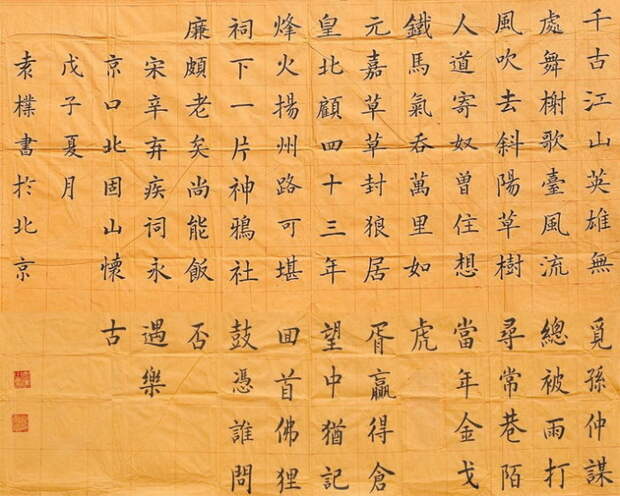 千古江山英雄無覓孫仲謀
處舞榭歌臺風流總被雨打
風吹去斜陽草樹尋常巷陌
人道寄奴曾住想當年金戈
鐵馬氣吞萬里如虎
元嘉草草封狼居胥贏得倉
皇北顧四十三年望中猶記
烽火揚州路可堪囬首佛狸
祠下一片神鴉社鼓憑誰問
廉頗老矣尚能飯否
宋辛弃疾詞永遇樂
京口北固山懷古
戊子夏月
袁樸書於北京